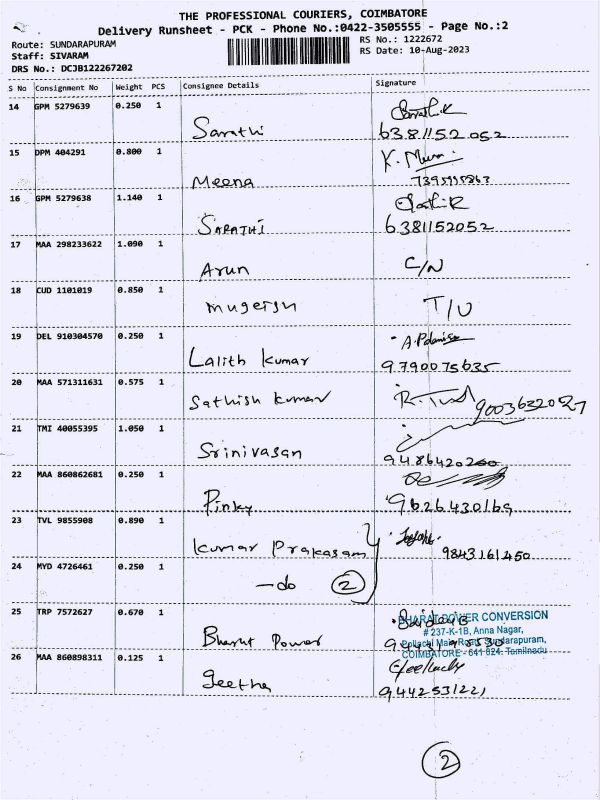 THE PROFESSIONAL COURIERS, COIMBATORE
Delivery Runsheet - PCK - Phone No.:0422-3505555 - Page No.:2
Route: SUNDARAPURAM
RS No.: 1222672
Staff: SIVARAM
RS Date: 10-Aug-2023
DRS No.: DCJB122267202
S No Consignment No Weight PCS Consignee Details Signature
14 GPM 5279639 0.250 1
Sarathi 6381152052
15 DPM 404291 0.800 1 K.
Meena
16 GPM 5279638 1.140 1
SARATHI 6381152052
17 MAA 298233622 1.090 1
Arun C/N
18 CUD 1101019 0.850 1
T/U
19 DEL 910304570 0.250 1
Lalith kumar 9790075635
20 MAA 571311631 0.575 1
Sathish kumar 9003632027
21 TMI 40055395 1.050 1
Srinivasan 9486420200
22 MAA 860862681 0.250 1
Pinky 9626430169
23 TVL 9855908 0.890 1
Kumar Prakasam 9843161450
24 MYD 4726461 0.250 1
-do 2
25 TRP 7572627 0.670 1
BHARAT POWER CONVERSION
# 237-K-1B, Anna Nagar,
Bharat Power
Pollachi Main Road, Sundarapuram,
COIMBATORE - 641 024. Tamilnadu
26 MAA 860898311 0.125 1
Geetha 9442531221
2